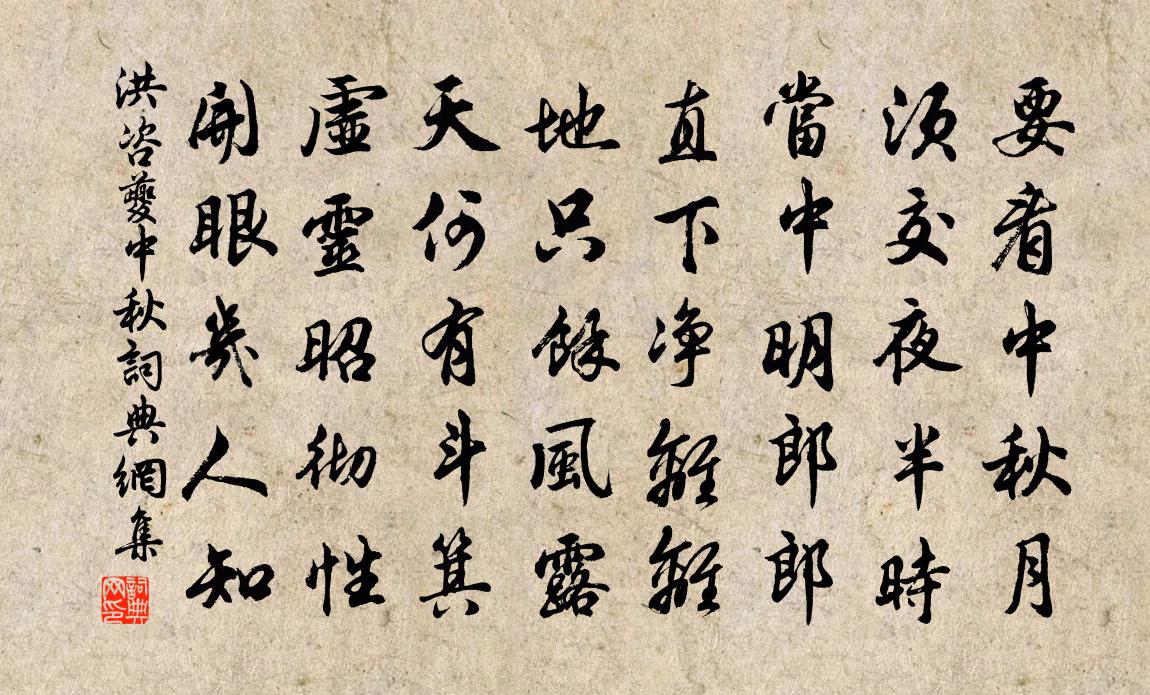 要看中秋月
須交夜半時
當中明郎郎
直下净離離
地只餘風露
天何有斗箕
虛靈昭徹性
開眼幾人知
洪咨夔中秋詞典網集
詞典网印